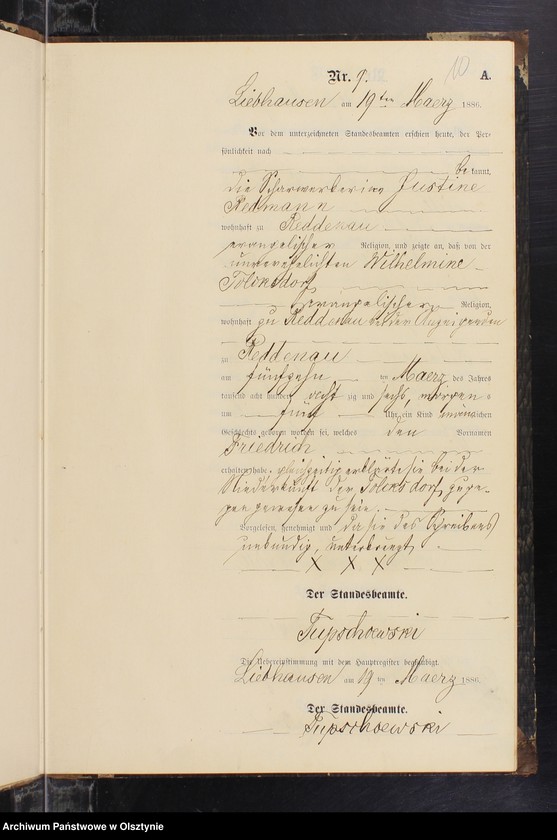 10
Nr. 9. A.
Liebhausen am 19ten Maerz 1886.
Vor dem unterzeichneten Standesbeamten erschien heute, der Per-
sönlichkeit nach
bekannt,
die Scharwerkerin Justine
Redmann
wohnhaft zu Reddenau
evangelischer Religion, und zeigte an, daß von der
unverehelichten Wilhelmine
Tolksdorf
evangelischer Religion,
wohnhaft zu Reddenau bei der Anzeigenden
zu Reddenau
am fünfzehn ten Maerz des Jahres
tausend acht hundert acht zig und sechs, morgens
um fünf Uhr ein Kind männlichen
Geschlechts geboren worden sei, welches den Vornamen
Friedrich
erhalten habe. gleichzeitig erklärte sie bei der
Niederkunft der Tolksdorf zuge-
gen gewesen zu sein.
Vorgelesen, genehmigt und da sie des Schreibens
unkundig, unterkreuzt
X X X
Der Standesbeamte.
Tupschoewski
Die Uebereinstimmung mit dem Hauptregister beglaubigt.
Liebhausen am 19ten Maerz 1886.
Der Standesbeamte.
Tupschoewski
Archiwum Państwowe w Olsztynie